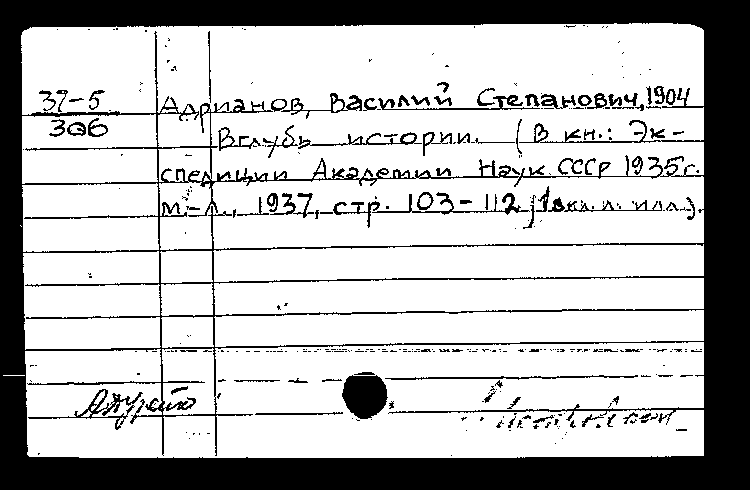 37-5
306
Адрианов, Василий Степанович, 1904
Вглубь истории. (В кн.: Эк-
спедиции Академии Наук СССР 1935г.
М.-Л., 1937, стр. 103-112, 1 вкл. л. илл.).